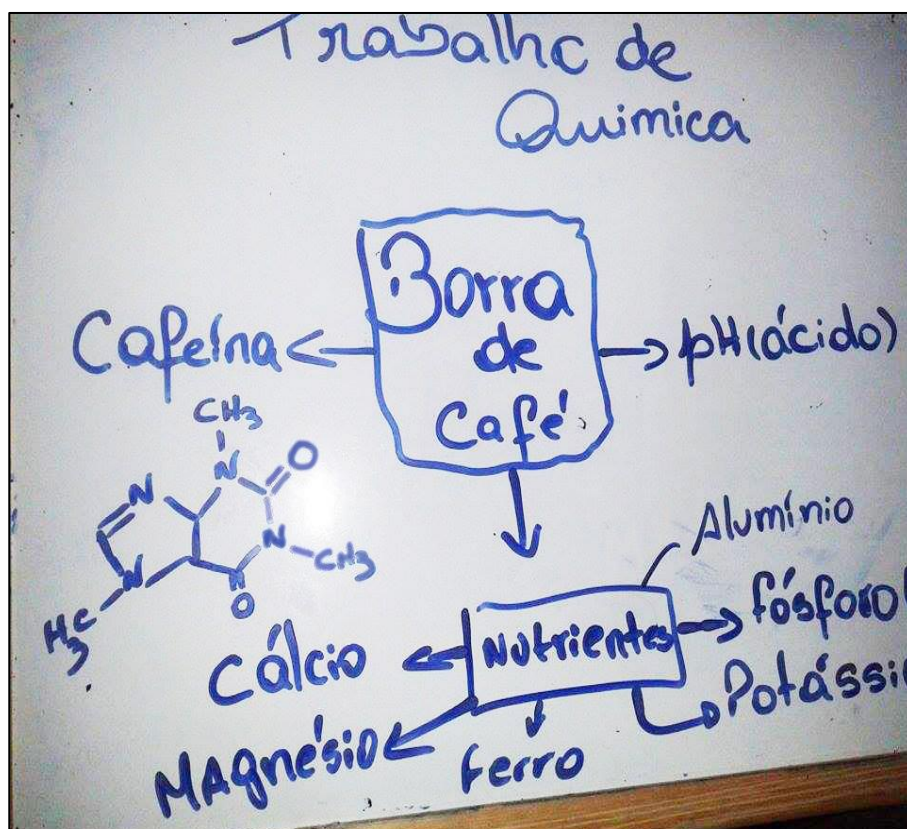 Trabalho de
Quimica
Borra
de
Café
Cafeína
pH(ácido)
CH3
N
O
N
N
CH3
N
O
H3C
Alumínio
Nutrientes
fósforo
Potássi
Cálcio
Magnésio
ferro